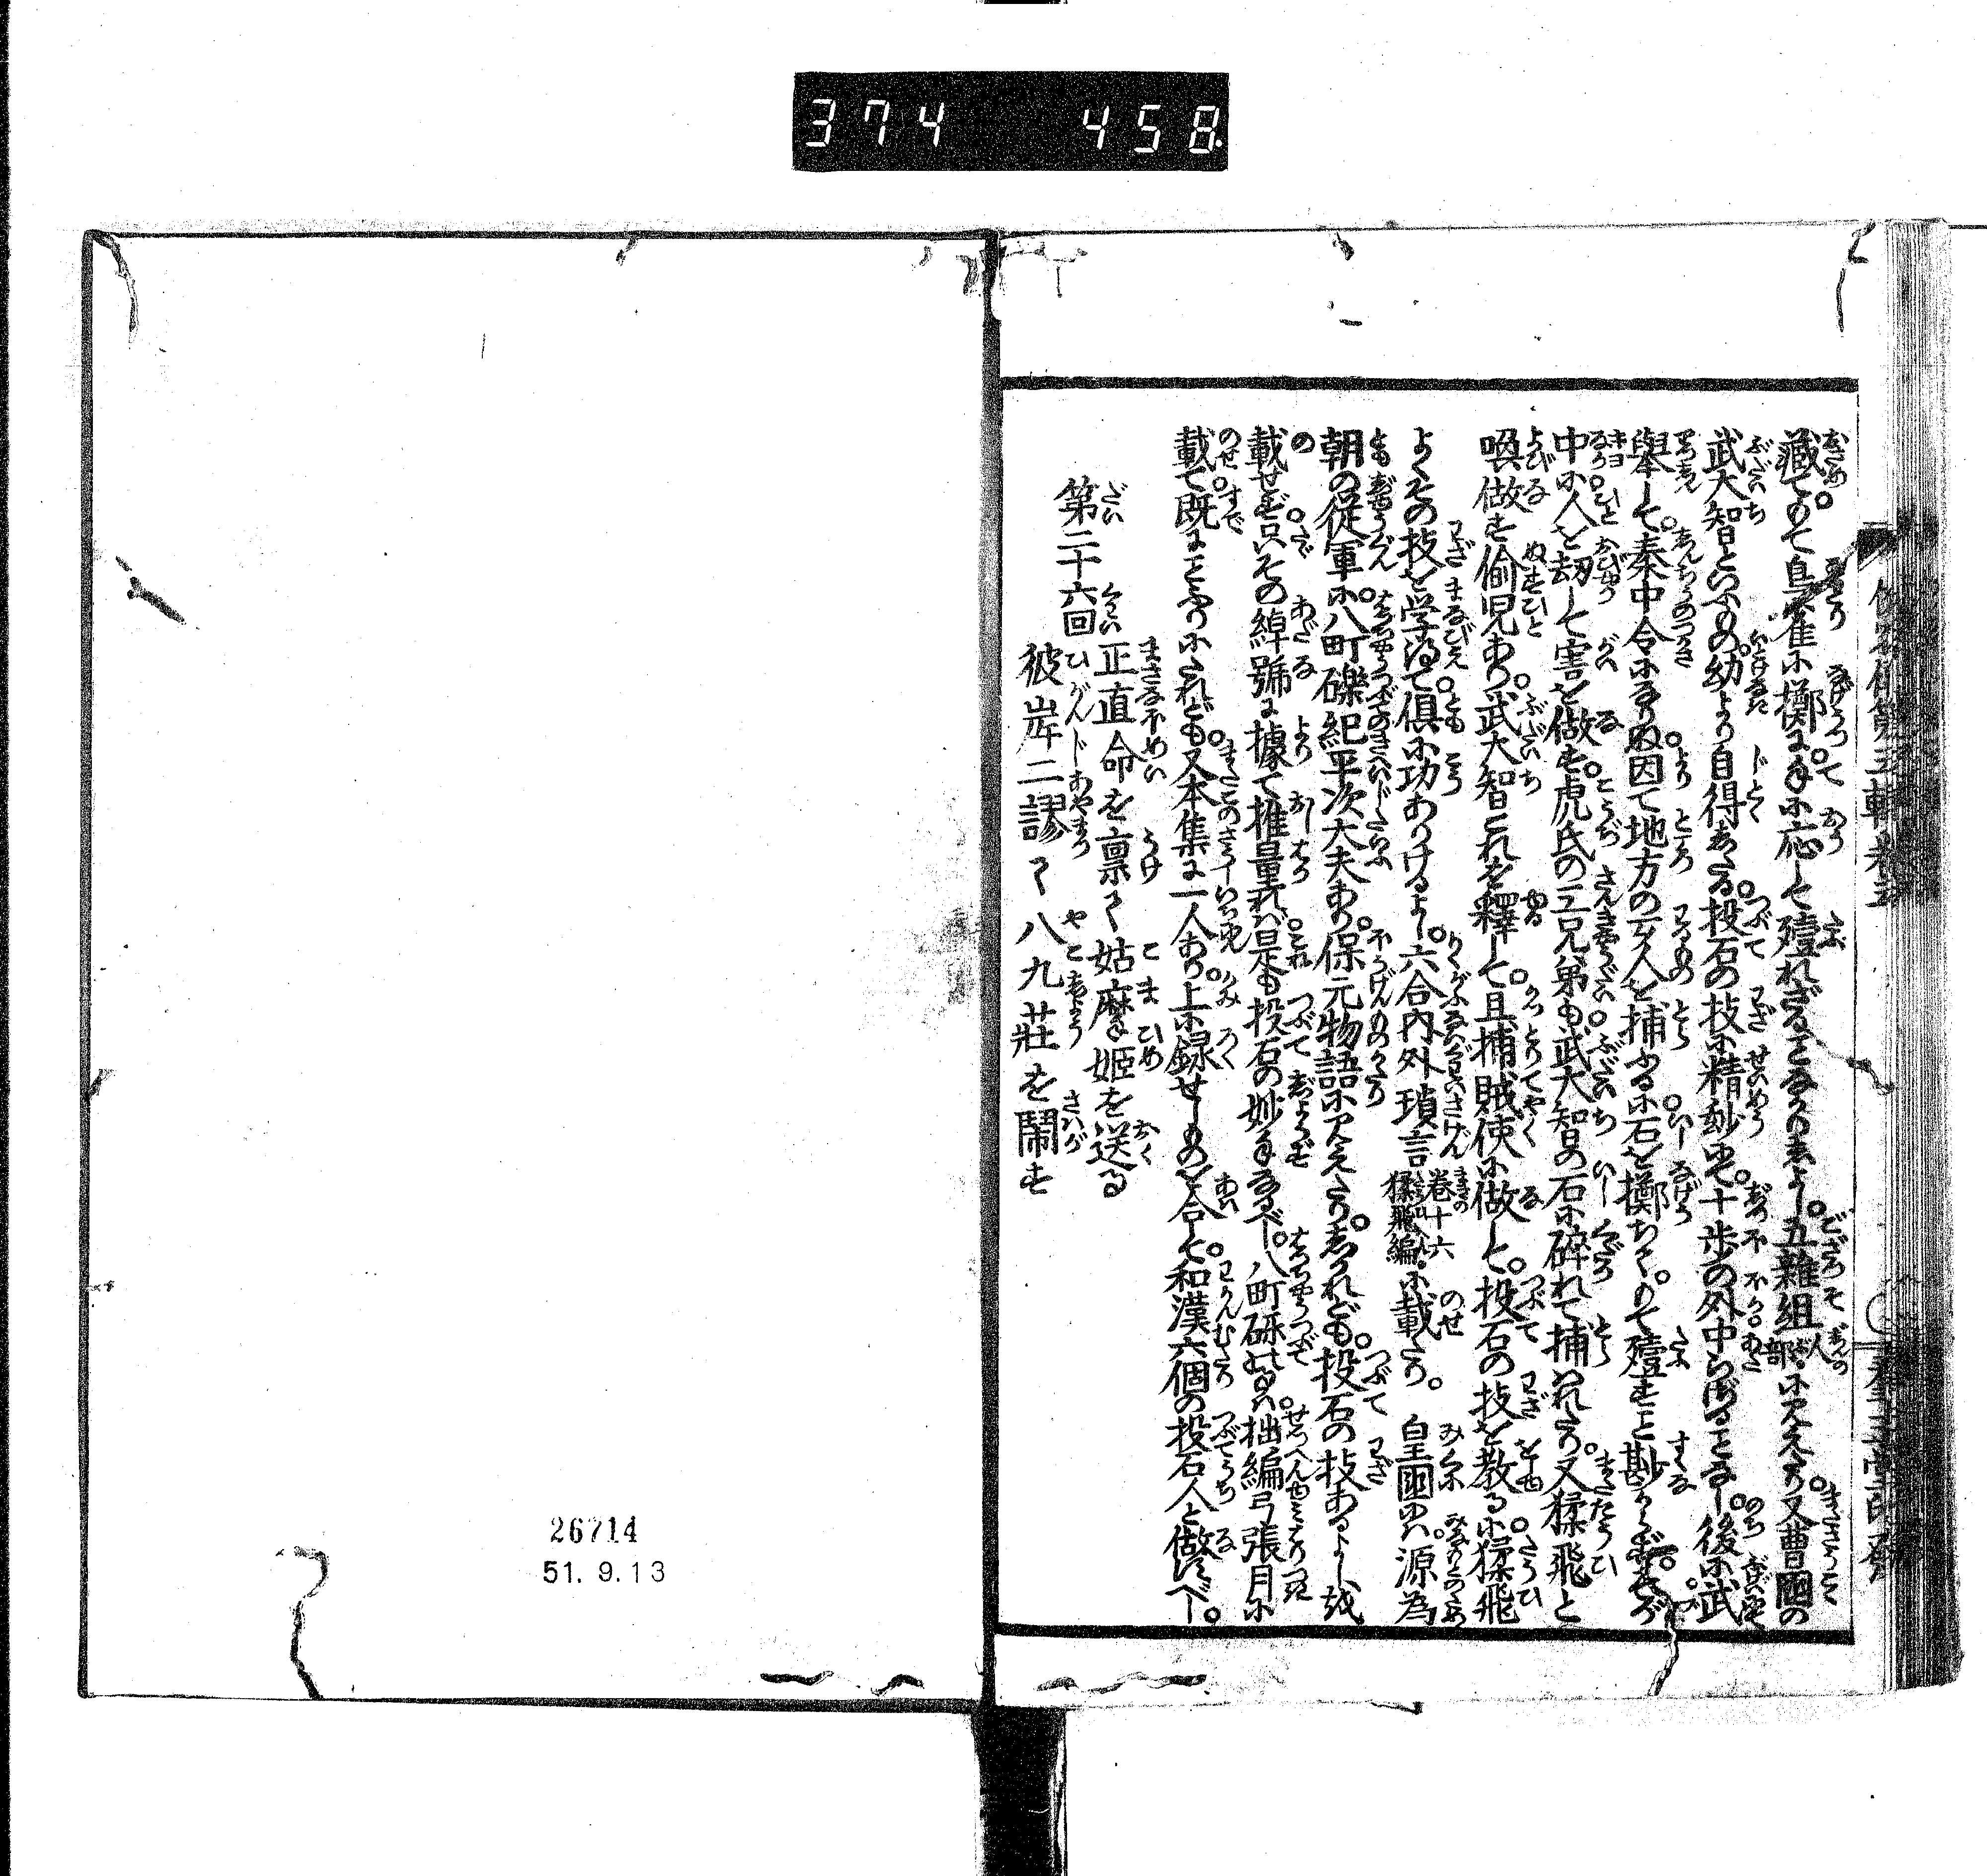 374 458
藏めて鳥雀に擲に手に応して殪れざることなかりしよし五雜組人部に見えたり又曹国の
武大智といふもの幼より自得したる投石の技に精妙にて十步の外中らざることなし後に武
擧して秦中令になりぬ因て地方の歹人を捕ふるに石を擲ちもて殪すこと尠からず
中に人を劫して害を做す虎氏の三兄弟も武大智の石に碎れて捕はれたり又猱飛と
喚做す偷兒あり武大智これを釋して且捕賊使に做して投石の技を教るに猱飛
よくその技を学得て俱に功ありけるよし六合内外瑣言巻十六猱飛編に載たり。皇国にては源為
朝の從軍に八町礫紀平次大夫あり保元物語に見えたりしかれども投石の技あるよしは
載せず只その綽號に據て推量れば是も投石の妙手なるべし八町礫がことは拙編弓張月に
載て既にことふりにたれども又本集に一人あり上に録せしものを合して和漢六個の投石人と做すべし。
第二十六回
正直命を禀て姑麻姬を送る
彼岸二謬て八九莊を鬧す
26714
51.9.13